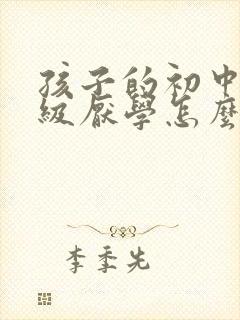 孩子的初中
级厌學怎麼
李季先